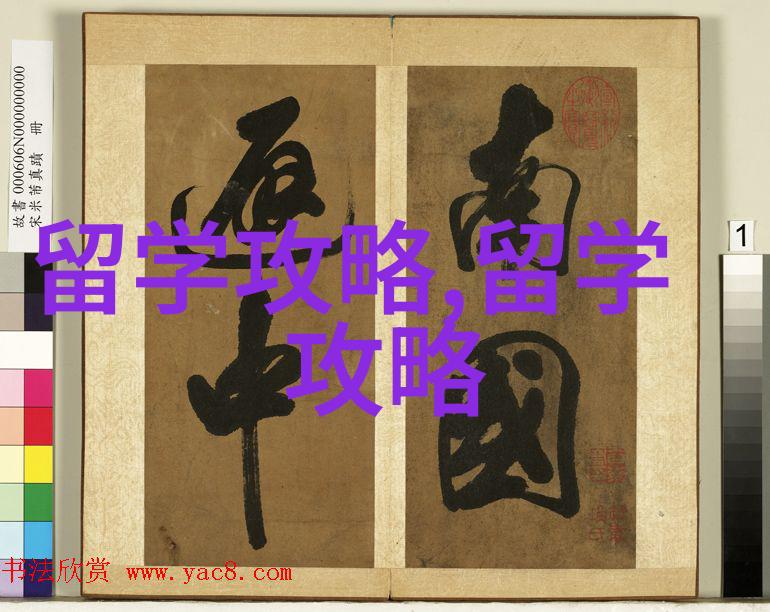 故書000606N000000000
宋米芾真蹟 冊
南國
遐中
留学攻略,留学
攻略
1
书法欣赏 www.yac8.com